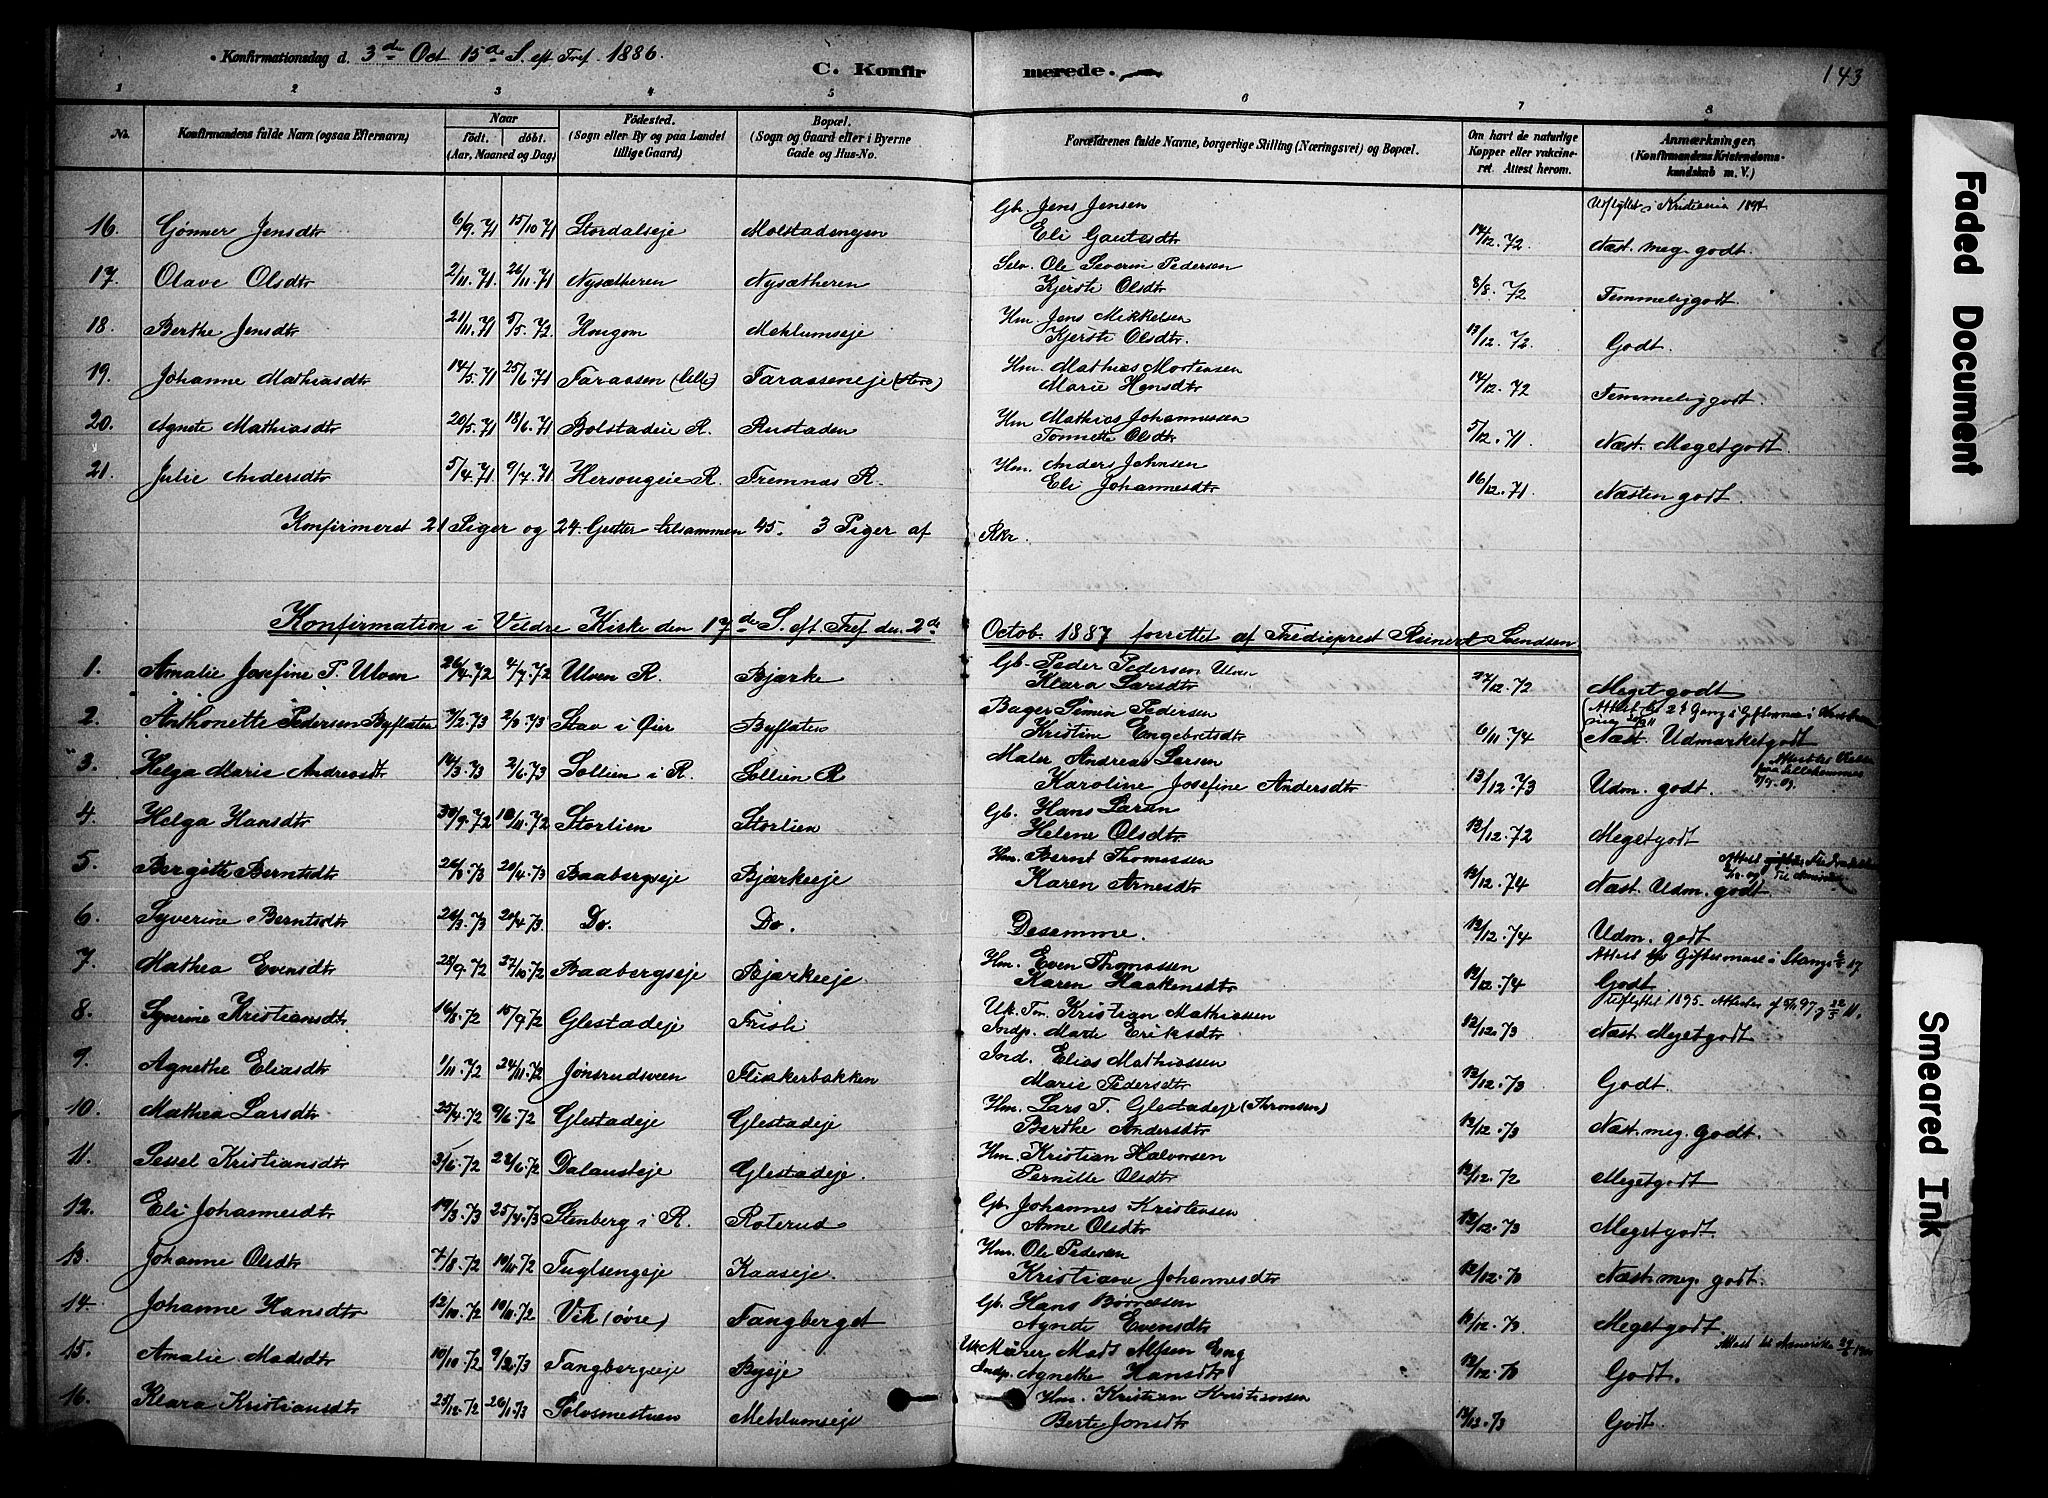 Konfirmationsdag d. 3de Oct 15de S. eft Tref. 1886.
C. Konfirmerede.
143
1 2 3 4 5 6 7 8
No. Konfirmandens fulde Navn (ogsaa Efternavn) Naar født. døbt. (Aar, Maaned og Dag) Fødested. (Sogn eller By og paa Landet tillige Gaard) Bopæl. (Sogn og Gaard eller i Byerne Gade og Hus-No. Forældrenes fulde Navne, borgerlige Stilling (Næringsvei) og Bopæl. Om havt de naturlige Kopper eller vakcineret. Attest herom. Anmærkninger. (Konfirmandens Kristendomskundskab m. V.)
Gb. Jens Jensen Udflyttet i Kristiania 1894
16. Gønner Jensdtr 6/9.71 15/10.71 Stordalseje Molstadengen Eli Gautesdtr 14/12.72 Næst. meg. godt.
Selv. Ole Severin Pedersen
17. Olave Olsdtr 2/11.71 26/11.71 Nysætheren Nysætheren Kjersti Olsdtr 8/8.72 Temmelig godt.
Hm. Jens Mikkelsen
18. Berthe Jensdtr 21/11.71 5/5.72. Hougom Mehlumseje Kjersti Olsdtr. 13/12.72 Godt.
Hm. Mathias Mortensen
19. Johanne Mathiasdtr 14/5.71 25/6.71 Farassen (lille) Farasseneje (store) Marie Hansdtr 14/12.72 Temmelig godt.
Hm Mathias Johannessen
20. Agnete Mathiasdtr 20/5.71 18/6.71 Bolstadeie R. Rustaden Tonnette Olsdtr 5/12.71 Næst. Meget godt.
Hm. Anders Johnsen
21. Julie Andersdtr 5/4.71 9/7.71 Hersougeie R. Fremnæs R. Eli Johannesdtr 16/12.71 Næsten godt.
Konfirmeret 21 Piger og 24 Gutter tilsammen 45. 3 Piger af Rkr.
Konfirmation i Veldre Kirke den 17de S. eft. Tref. den 2de Octob. 1887 forrettet af Tredieprest Reinert Svendsen
Gb. Peder Pedersen Ulven
1. Amalie Josefine P. Ulven 26/4.72 4/7.72 Ulven R. Bjærke Klara Larsdtr 17/12.72 Meget godt
Bager Simen Pedersen
2. Anthonette Pedersen Byflaten 7/2.73 2/3.73 Stav i Øier Byflaten Kristine Engebretsdtr 6/11.74 Næst. Udmærket godt
Maler Andreas Larsen
3. Helga Marie Andreasdtr 14/3.73 2/6.73 Sollien i R. Sollien R Karoline Josefine Andersdtr 13/12.73 Udm. godt.
Gb. Hans Larsen
4. Helga Hansdtr 30/9.72 10/11.72 Storlien Storlien Helene Olsdtr 12/12.72 Meget godt
Hm. Bernt Thomassen
5. Bergitte Berntsdtr 26/3.73 20/4.73 Baabergseje Bjærkeeje Karen Arnesdtr 12/12.74 Næst. Udm. godt.
6. Syverine Berntsdtr 26/3.73 20/4.73 Do. Do. Desamme. 12/12.74 Udm. godt
Hm. Even Thomassen Attest til Giftermaal i Stange 17
7. Mathea Evensdtr 28/9.72 27/10.72 Baabergseje Bjærkeeje Karen Haakensdtr 12/12.74 Godt.
Uk. Tm. Kristian Mathiassen Udflyttet 1895.
8. Syverine Kristiansdtr 16/8.72 15/9.72 Glestadeje Fristi Indp. Marte Eriksdtr 12/12.73 Næst Meget godt
Ind. Elias Mathiassen
9. Agnethe Eliasdtr 1/11.72 24/11.72 Jønsrudsveen Fliskerbakken Marie Pedersdtr 12/12.73 Godt.
Hm. Lars T. Glestadeje (Thronsen)
10. Mathea Larsdtr 25/4.72 9/6.72 Glestadeje Glestadeje Berthe Andersdtr 12/12.73 Næst. meg. godt.
Hm. Kristian Halvorsen
11. Sevel Kristiansdtr 3/6.72 22/6.72 Dalausteje Glestadeje. Pernille Olsdtr 12/12.72 Meget godt
Gb. Johannes Kristensen
12. Eli Johannesdtr 19/3.73 25/4.73 Stenberg i R. Roterud Anne Olsdtr 12/12.73 Meget godt.
Hm. Ole Pedersen
13. Johanne Olsdtr 7/8.72 10/11.72 Fuglsengeje Kaaseje. Kristiane Johannesdtr 12/12.70 Næst. meg. godt.
Gb. Hans Børresen
14. Johanne Hansdtr 12/10.72 10/11.72 Vik (øvre) Fangberget Agnete Evensdtr 12/12.70 Meget godt
Uk Murer Mads Alfsen Eng Attest til Amerika
15. Amalie Madsdtr 10/10.72 9/2.73 Fangbergseje Byeje Indp. Agnethe Hansdtr 12/12.70 Godt.
Hm. Kristian Kristiansen
16. Klara Kristiansdtr 25/12.72 26/1.73 Solosmestuen Mehlumseje Berte Jonsdtr 12/12.73 Godt
Faded Document
Smeared Ink